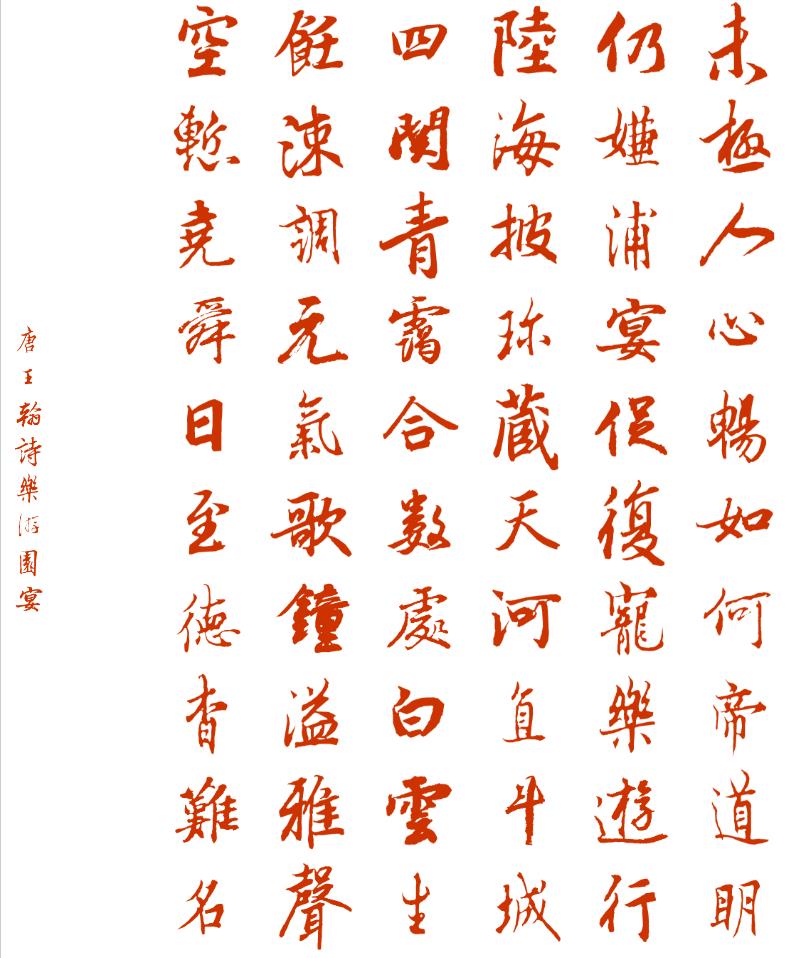 未極人心暢如何帝道明
仍嫌浦宴促復寵樂遊行
陸海披珎藏天河直斗城
四関青靄合数處白雲生
飪涑調元氣歌鐘溢雅聲
空慙堯舜日至德杳難名
唐王翰詩樂游園宴